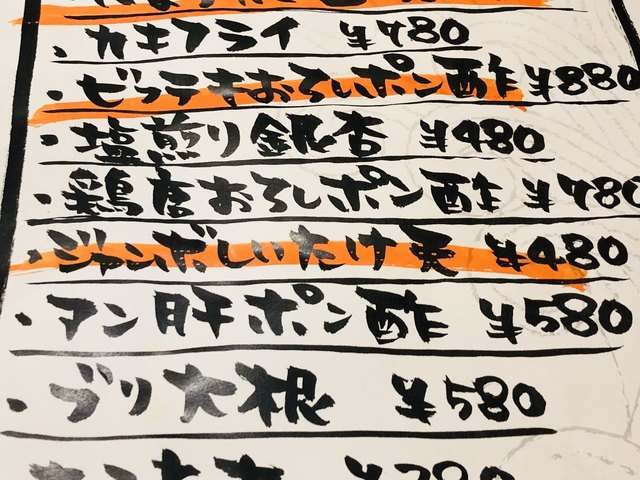 ・カキフライ ¥780
・ビフテキおろしポン酢 ¥880
・塩煎り銀杏 ¥480
・鶏唐おろしポン酢 ¥780
・ジャンボしいたけ天 ¥480
・アン肝ポン酢 ¥580
・ブリ大根 ¥580